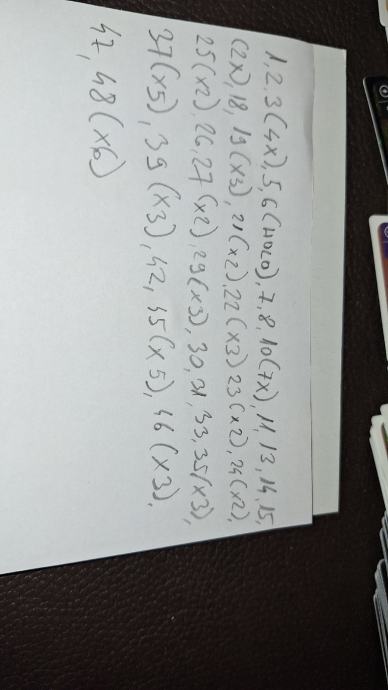 1, 2, 3 (4x), 5, 6 (HOLO), 7, 8, 10 (7x), 11, 13, 14, 15,
(2x), 18, 19 (x3), 21 (x2), 22 (x3) 23 (x2), 24 (x2),
25 (x2), 26, 27 (x2), 29 (x3), 30, 31, 33, 35 (x3),
37 (x5), 39 (x3), 42, 45 (x5), 46 (x3),
47, 48 (x6)